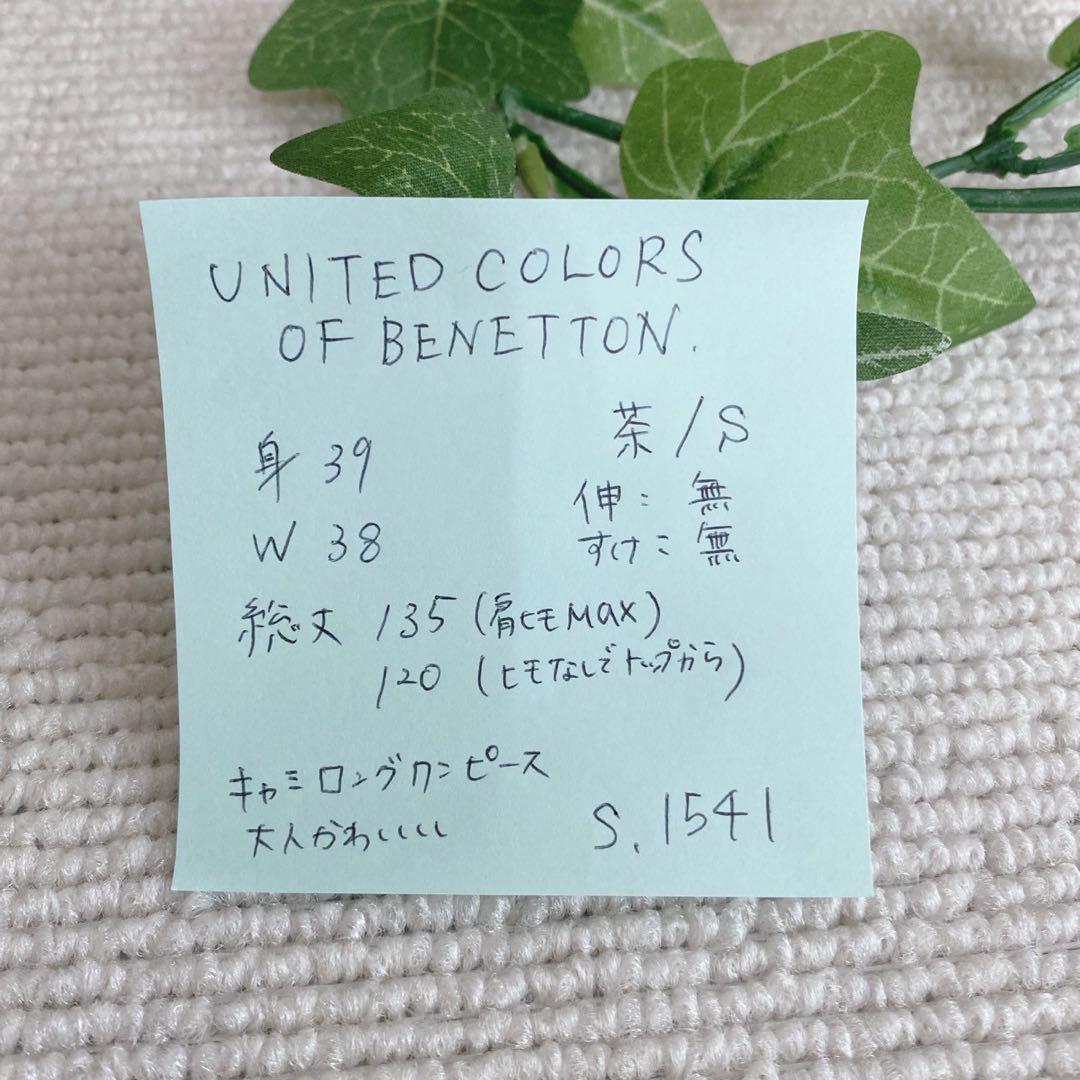 UNITED COLORS
OF BENETTON.
茶/S
身 39
伸: 無
W 38
すけ: 無
総丈 135 (肩ヒモMAX)
120 (ヒモなしでトップから)
キャミロングワンピース
大人かわいいい
S.1541